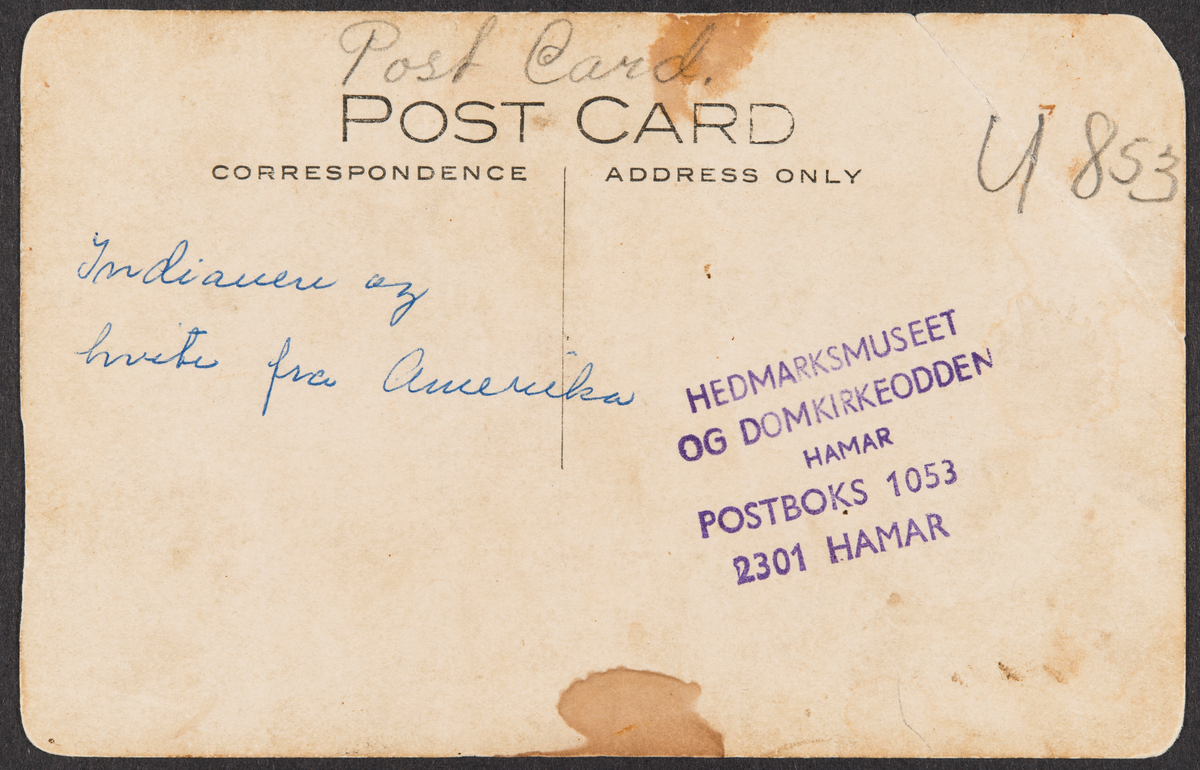 Post Card.
POST CARD
CORRESPONDENCE
ADDRESS ONLY
U 853
Indianere og
hvite fra Amerika
HEDMARKSMUSEET
OG DOMKIRKEODDEN
HAMAR
POSTBOKS 1053
2301 HAMAR